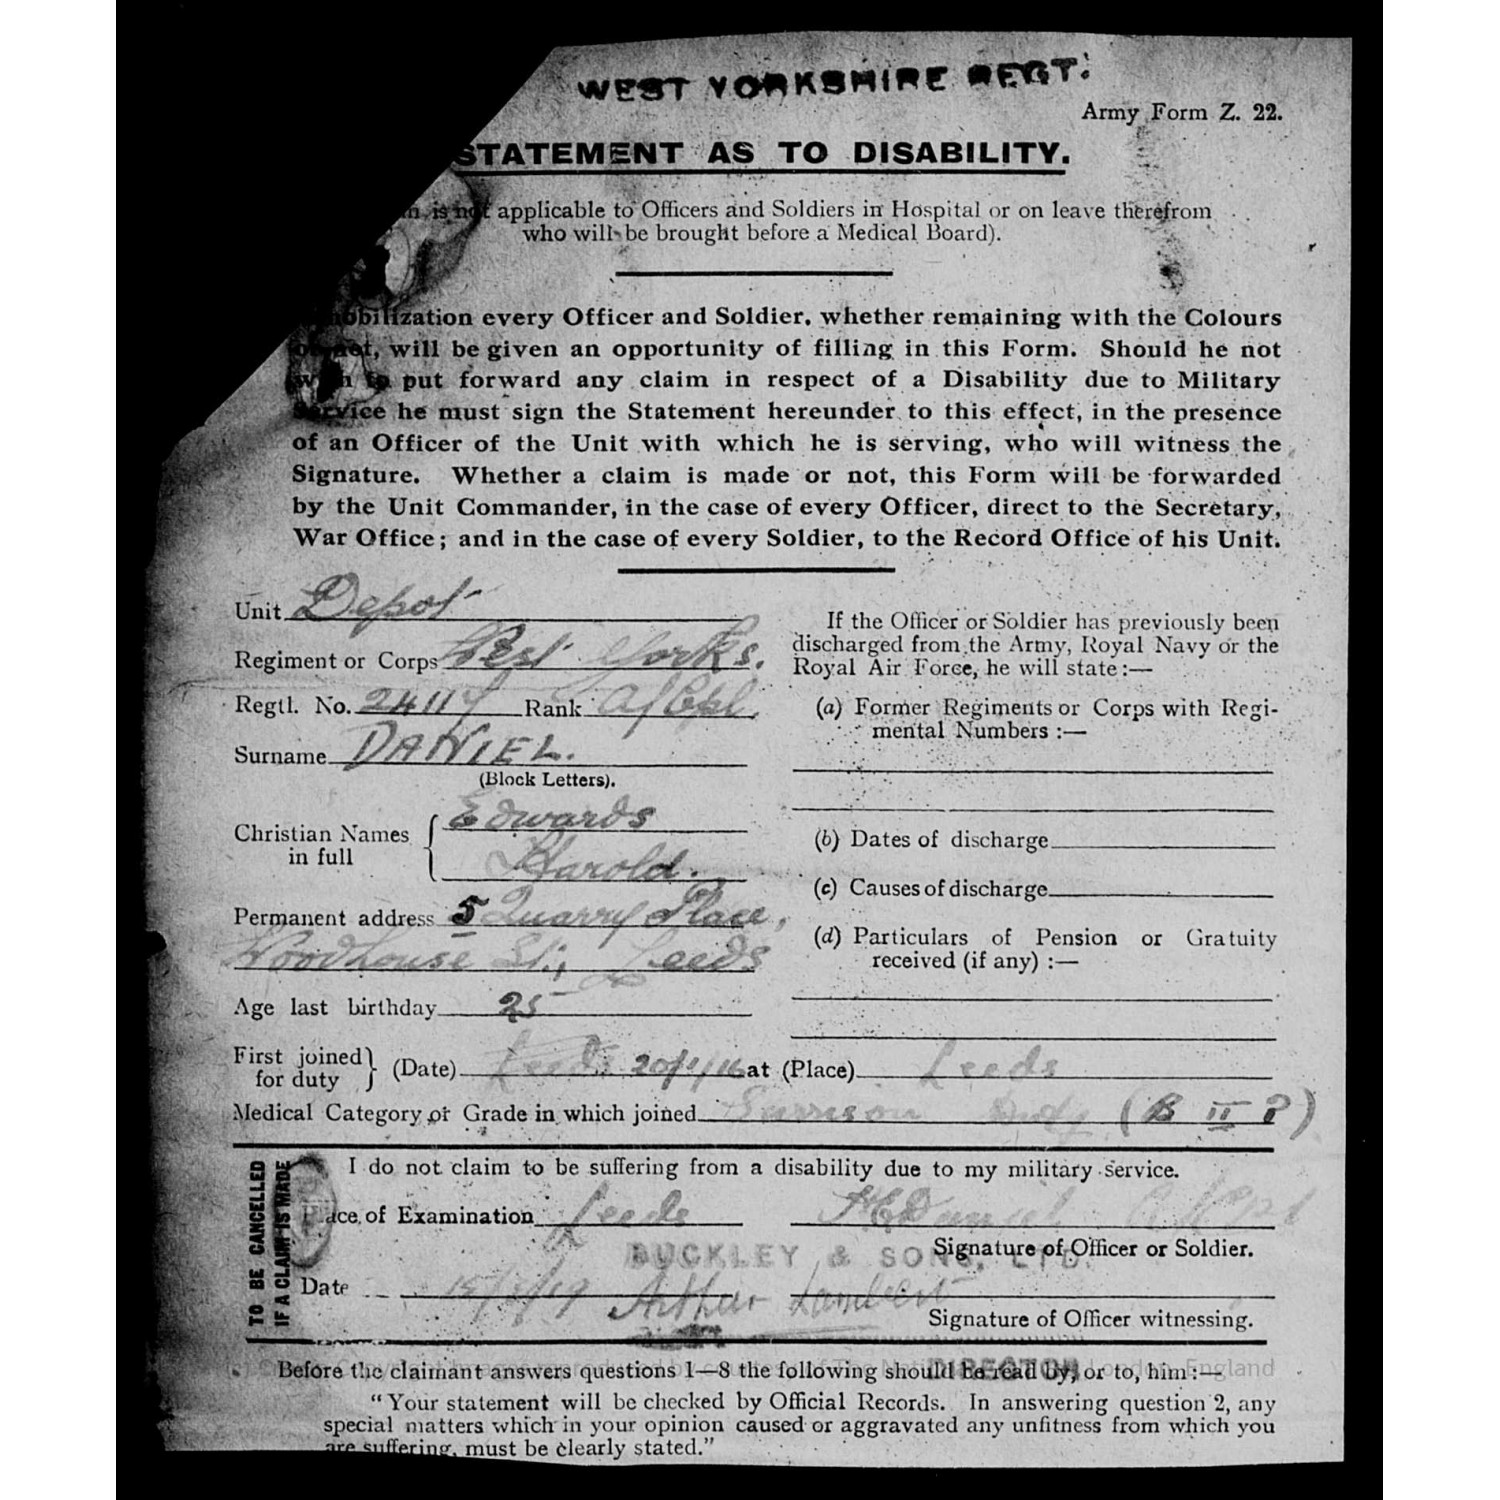 WEST YORKSHIRE REGT.
Army Form Z. 22.
STATEMENT AS TO DISABILITY.
is not applicable to Officers and Soldiers in Hospital or on leave therefrom
who will be brought before a Medical Board).
obilization every Officer and Soldier, whether remaining with the Colours
or not, will be given an opportunity of filling in this Form. Should he not
wish to put forward any claim in respect of a Disability due to Military
Service he must sign the Statement hereunder to this effect, in the presence
of an Officer of the Unit with which he is serving, who will witness the
Signature. Whether a claim is made or not, this Form will be forwarded
by the Unit Commander, in the case of every Officer, direct to the Secretary,
War Office; and in the case of every Soldier, to the Record Office of his Unit.
Unit Depot
Regiment or Corps West Yorks.
Regtl. No. 24117 Rank A/Cpl.
Surname DANIEL.
(Block Letters).
Christian Names in full { Edwards
Harold.
Permanent address 5 Quarry Place,
Woodhouse St., Leeds
Age last birthday 25
If the Officer or Soldier has previously been
discharged from the Army, Royal Navy or the
Royal Air Force, he will state:—
(a) Former Regiments or Corps with Regi-
mental Numbers :—
(b) Dates of discharge
(c) Causes of discharge
(d) Particulars of Pension or Gratuity
received (if any) :—
First joined for duty } (Date) Leeds 20/1/16 at (Place) Leeds
Medical Category or Grade in which joined Garrison Duty (B II ?)
TO BE CANCELLED
IF A CLAIM IS MADE
I do not claim to be suffering from a disability due to my military service.
Place of Examination Leeds
Daniel A/Cpl
Signature of Officer or Soldier.
BUCKLEY & SONS, LTD.
Date Arthur Lambert
Signature of Officer witnessing.
DIRECTOR
Before the claimant answers questions 1—8 the following should be read by, or to, him :—
"Your statement will be checked by Official Records. In answering question 2, any
special matters which in your opinion caused or aggravated any unfitness from which you
are suffering, must be clearly stated."